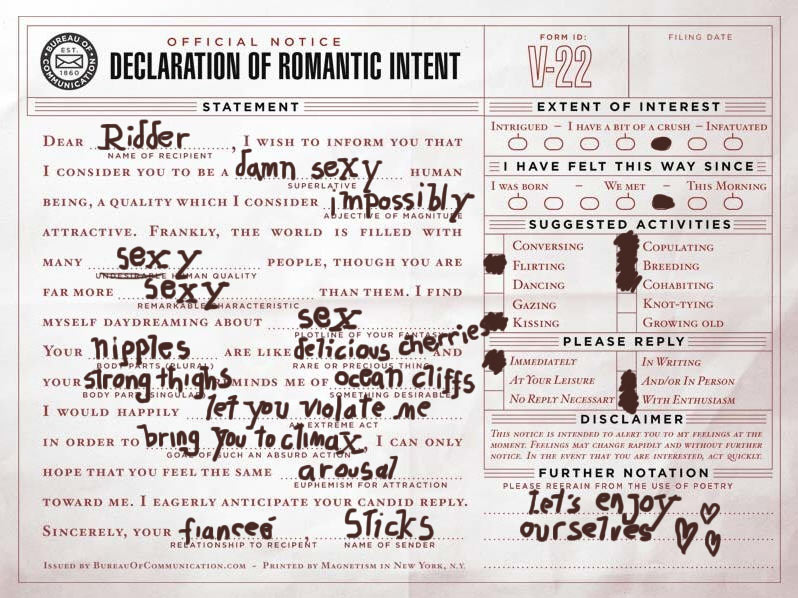 BUREAU OF COMMUNICATION
EST. 1860
OFFICIAL NOTICE
DECLARATION OF ROMANTIC INTENT
FORM ID:
V-22
FILING DATE
STATEMENT
DEAR Ridder, I WISH TO INFORM YOU THAT
NAME OF RECIPIENT
I CONSIDER YOU TO BE A damn sexy HUMAN
SUPERLATIVE
BEING, A QUALITY WHICH I CONSIDER impossibly
ADJECTIVE OF MAGNITUDE
ATTRACTIVE. FRANKLY, THE WORLD IS FILLED WITH
MANY sexy PEOPLE, THOUGH YOU ARE
UNDESIRABLE HUMAN QUALITY
FAR MORE sexy THAN THEM. I FIND
REMARKABLE CHARACTERISTIC
MYSELF DAYDREAMING ABOUT sex
PLOTLINE OF YOUR FANTASY
YOUR nipples ARE LIKE delicious cherries AND
BODY PARTS (PLURAL) RARE OR PRECIOUS THING
YOUR strong thighs REMINDS ME OF ocean cliffs
BODY PART (SINGULAR) SOMETHING DESIRABLE
I WOULD HAPPILY let you violate me
AN EXTREME ACT
IN ORDER TO bring you to climax, I CAN ONLY
GOAL OF SUCH AN ABSURD ACTION
HOPE THAT YOU FEEL THE SAME arousal
EUPHEMISM FOR ATTRACTION
TOWARD ME. I EAGERLY ANTICIPATE YOUR CANDID REPLY.
SINCERELY, YOUR fianceé, Sticks
RELATIONSHIP TO RECIPENT NAME OF SENDER
ISSUED BY BUREAUOFCOMMUNICATION.COM - PRINTED BY MAGNETISM IN NEW YORK, N.Y.
EXTENT OF INTEREST
INTRIGUED – I HAVE A BIT OF A CRUSH – INFATUATED
I HAVE FELT THIS WAY SINCE
I WAS BORN – WE MET – THIS MORNING
SUGGESTED ACTIVITIES
CONVERSING COPULATING
FLIRTING BREEDING
DANCING COHABITING
GAZING KNOT-TYING
KISSING GROWING OLD
PLEASE REPLY
IMMEDIATELY IN WRITING
AT YOUR LEISURE AND/OR IN PERSON
NO REPLY NECESSARY WITH ENTHUSIASM
DISCLAIMER
THIS NOTICE IS INTENDED TO ALERT YOU TO MY FEELINGS AT THE
MOMENT. FEELINGS MAY CHANGE RAPIDLY AND WITHOUT FURTHER
NOTICE. IN THE EVENT THAT YOU ARE INTERESTED, ACT QUICKLY.
FURTHER NOTATION
PLEASE REFRAIN FROM THE USE OF POETRY
Let's enjoy
ourselves